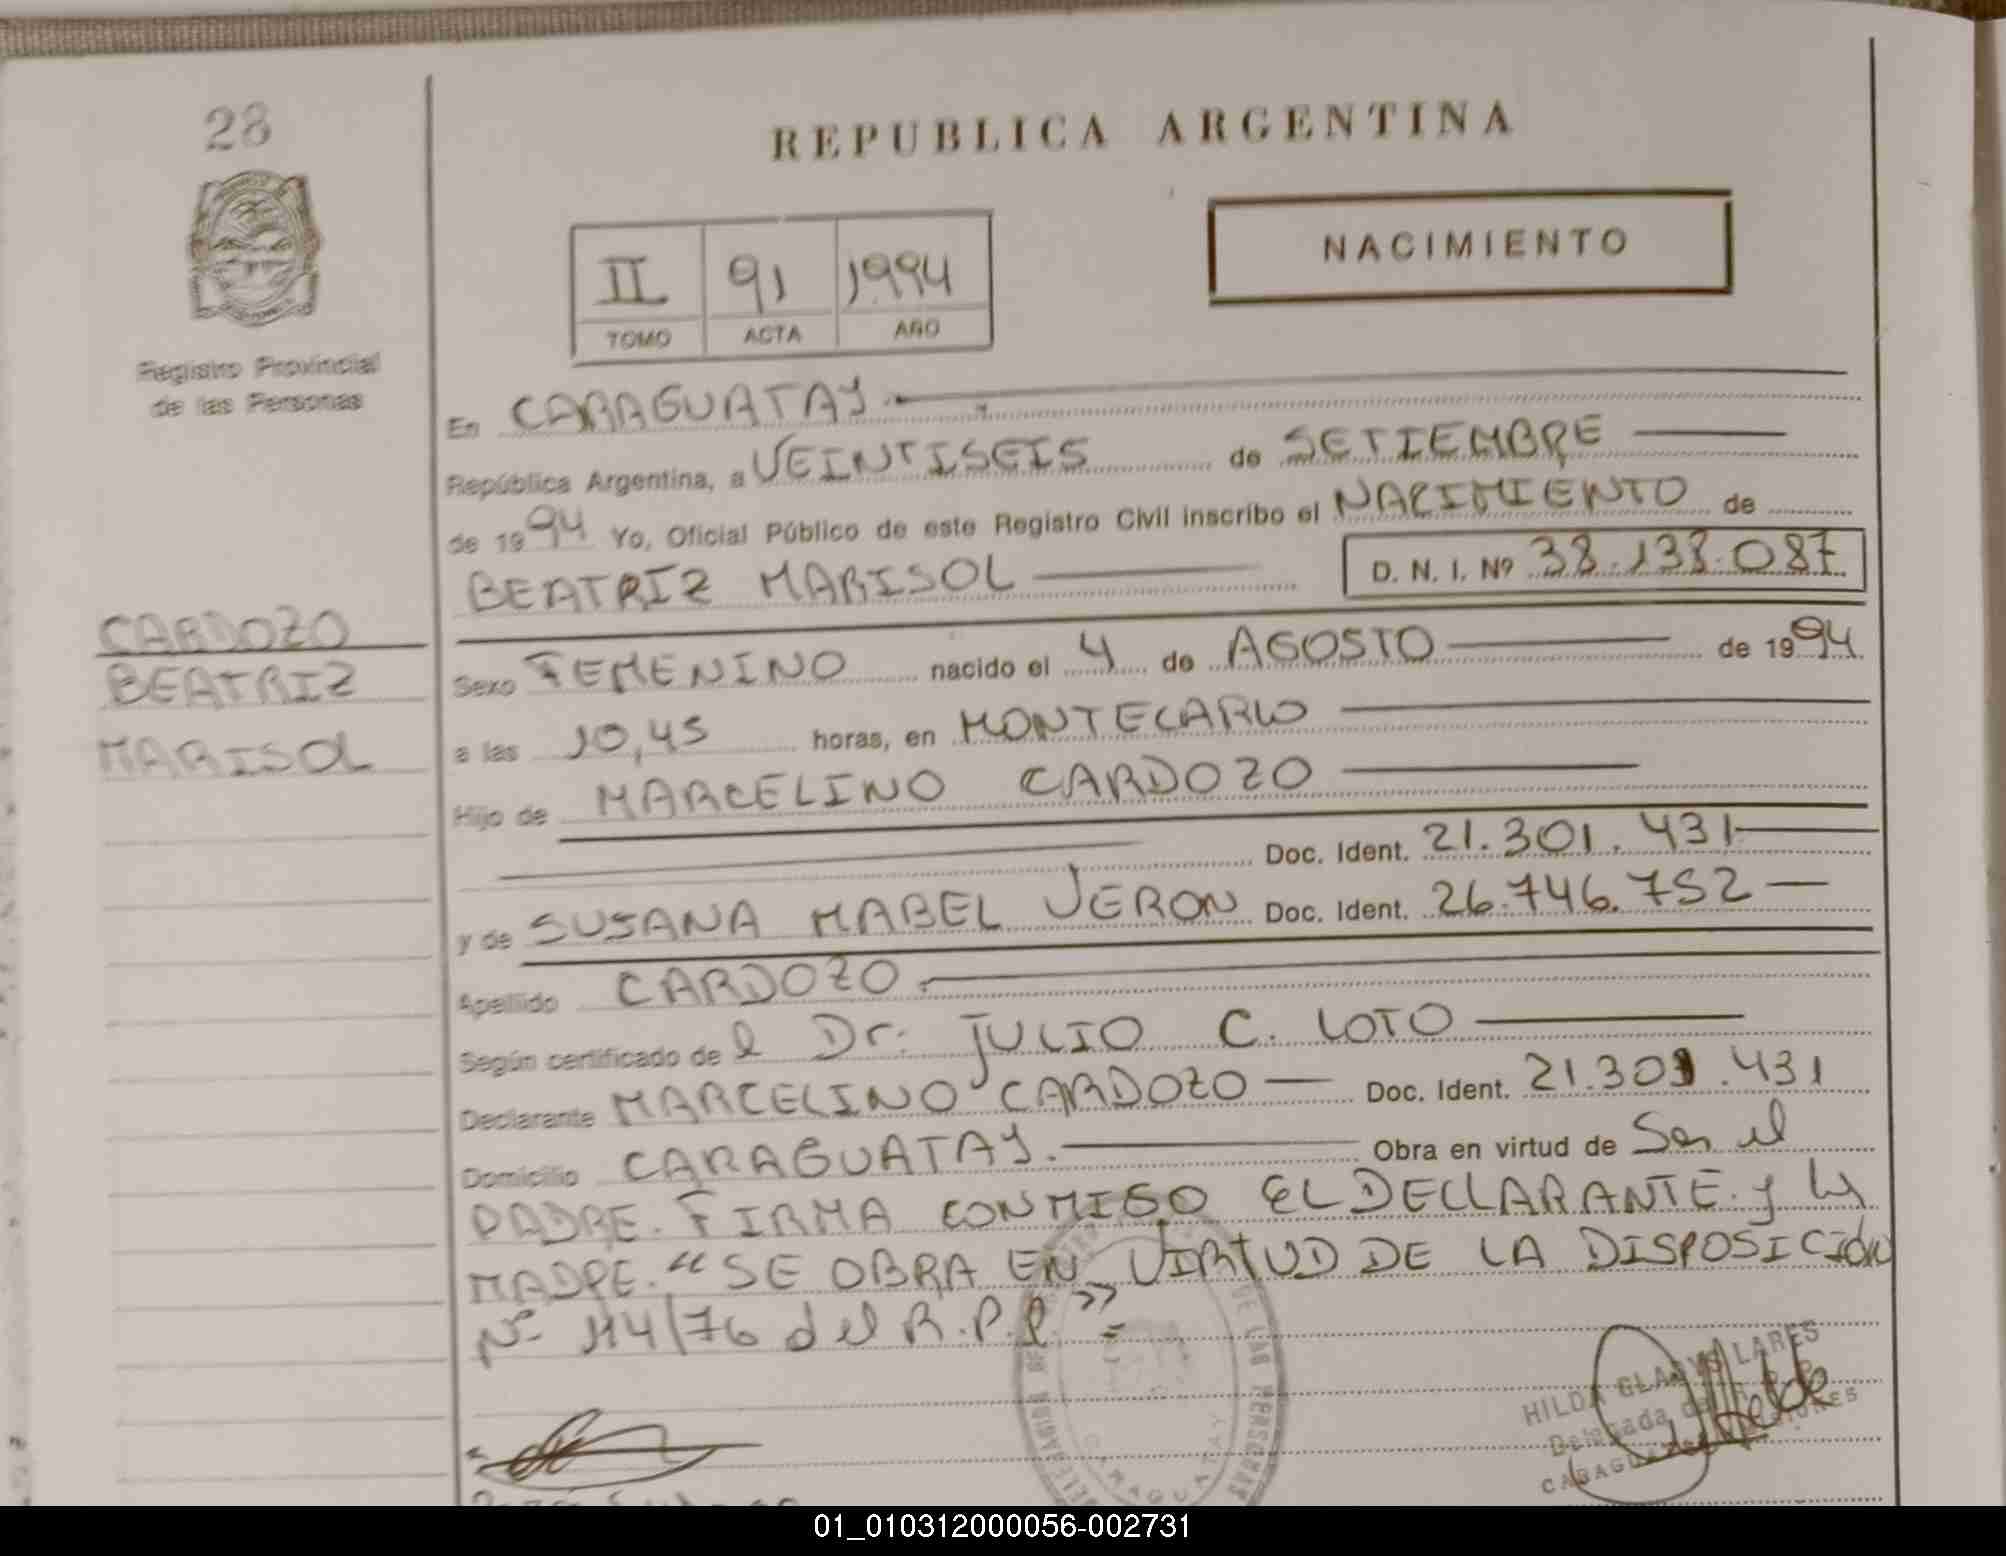 28
REPUBLICA ARGENTINA
NACIMIENTO
II 91 1994
TOMO ACTA AÑO
Registro Provincial
de las Personas
En CARAGUATAY.
República Argentina, a VEINTISEIS de SETIEMBRE
de 1994 Yo, Oficial Público de este Registro Civil inscribo el NACIMIENTO de
BEATRIZ MARISOL D. N. I. Nº 38.138.087
CARDOZO
BEATRIZ
MARISOL
Sexo FEMENINO nacido el 4 de AGOSTO de 1994
a las 10,45 horas, en MONTECARLO
Hijo de MARCELINO CARDOZO
Doc. Ident. 21.301.431
y de SUSANA MABEL VERON Doc. Ident. 26.746.752
Apellido CARDOZO.
Según certificado de el Dr. JULIO C. LOTO
Declarante MARCELINO CARDOZO Doc. Ident. 21.301.431
Domicilio CARAGUATAY. Obra en virtud de Ser el
PADRE. FIRMA CONMIGO EL DECLARANTE y la
MADRE. "SE OBRA EN VIRTUD DE LA DISPOSICIÓN
Nº 114/76 del R.P.P."=
DE LAS PERSONAS
CARAGUATAY
HILDA GLADYS LARES
Delegada del R.P.P.
CARAGUATAY MISIONES
01_010312000056-002731